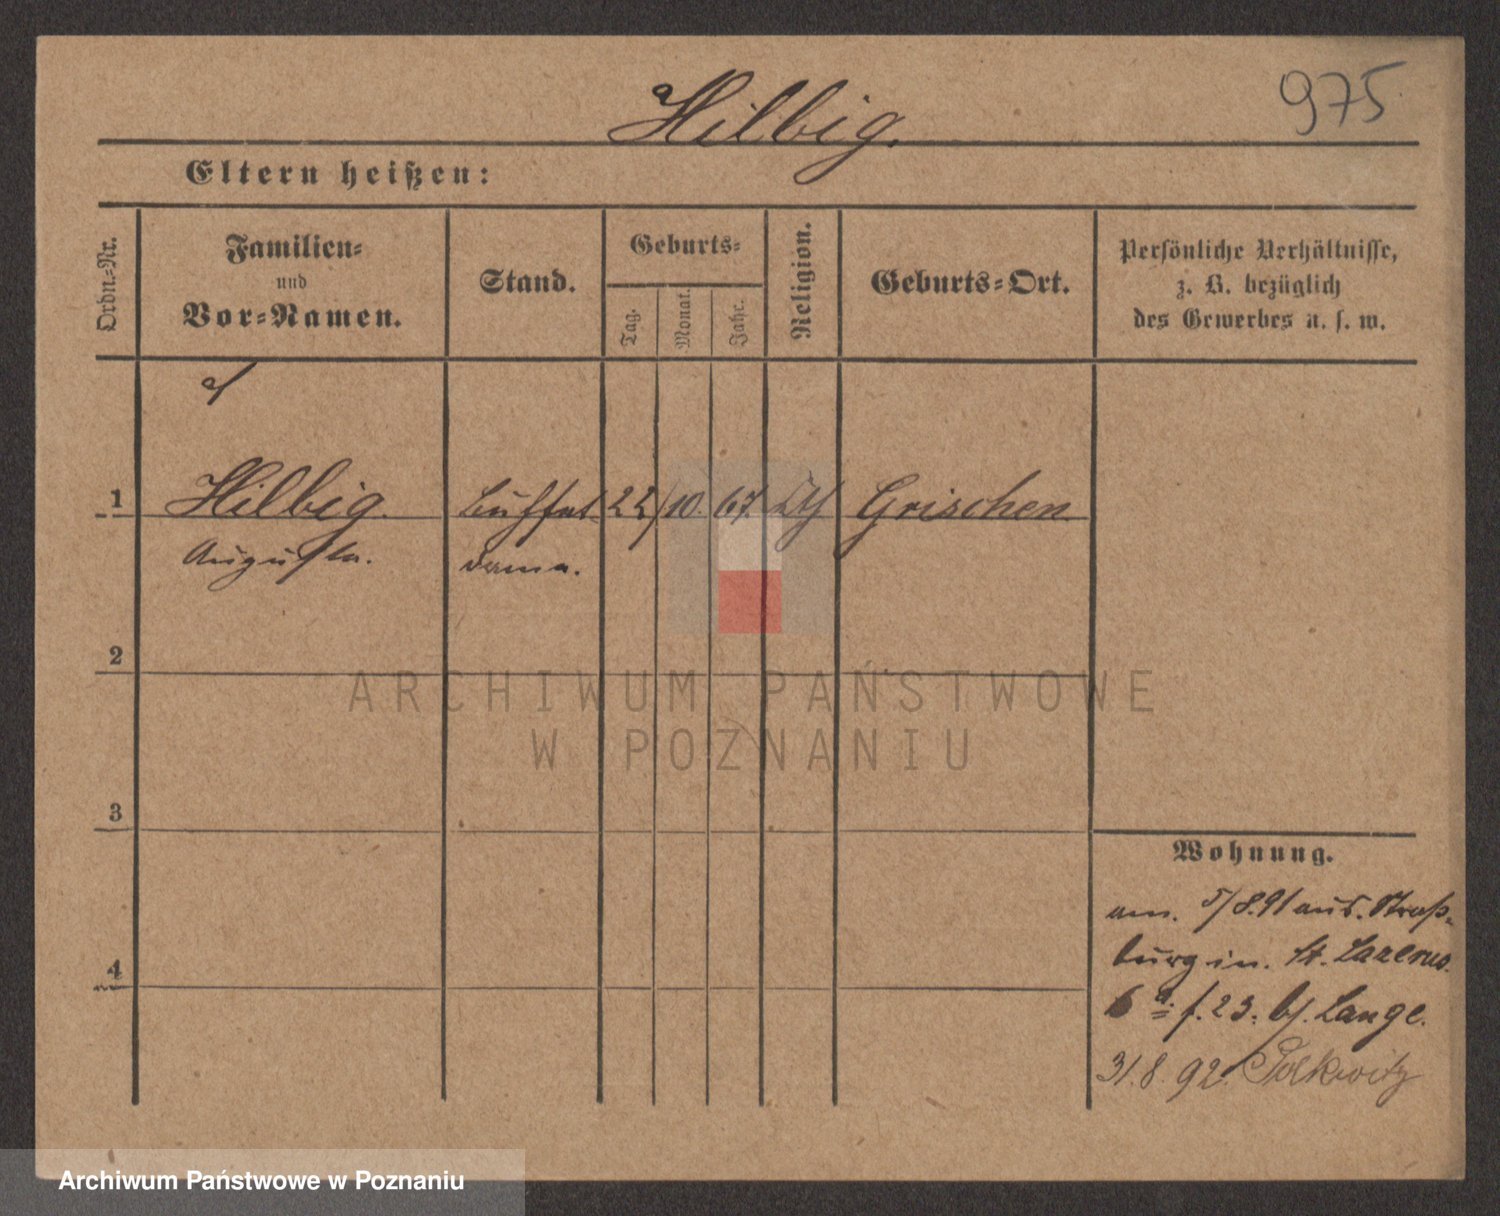 Hilbig.
975
Eltern heißen:
Ordn.-Nr.
Familien-
und
Vor-Namen.
Stand.
Geburts-
Tag.
Monat.
Jahr.
Religion.
Geburts-Ort.
Persönliche Verhältnisse,
z. B. bezüglich
des Gewerbes u. s. w.
1
Hilbig. Buffet- 22/ 10. 67. Grischen
Augusta. dame.
2
ARCHIWUM PAŃSTWOWE
W POZNANIU
3
Wohnung.
am. 5/8.91 aus. Straß-
burg in. St. Lazarus.
4
6 f. 23. bei. Lange.
31.8.92. Polkwitz
Archiwum Państwowe w Poznaniu